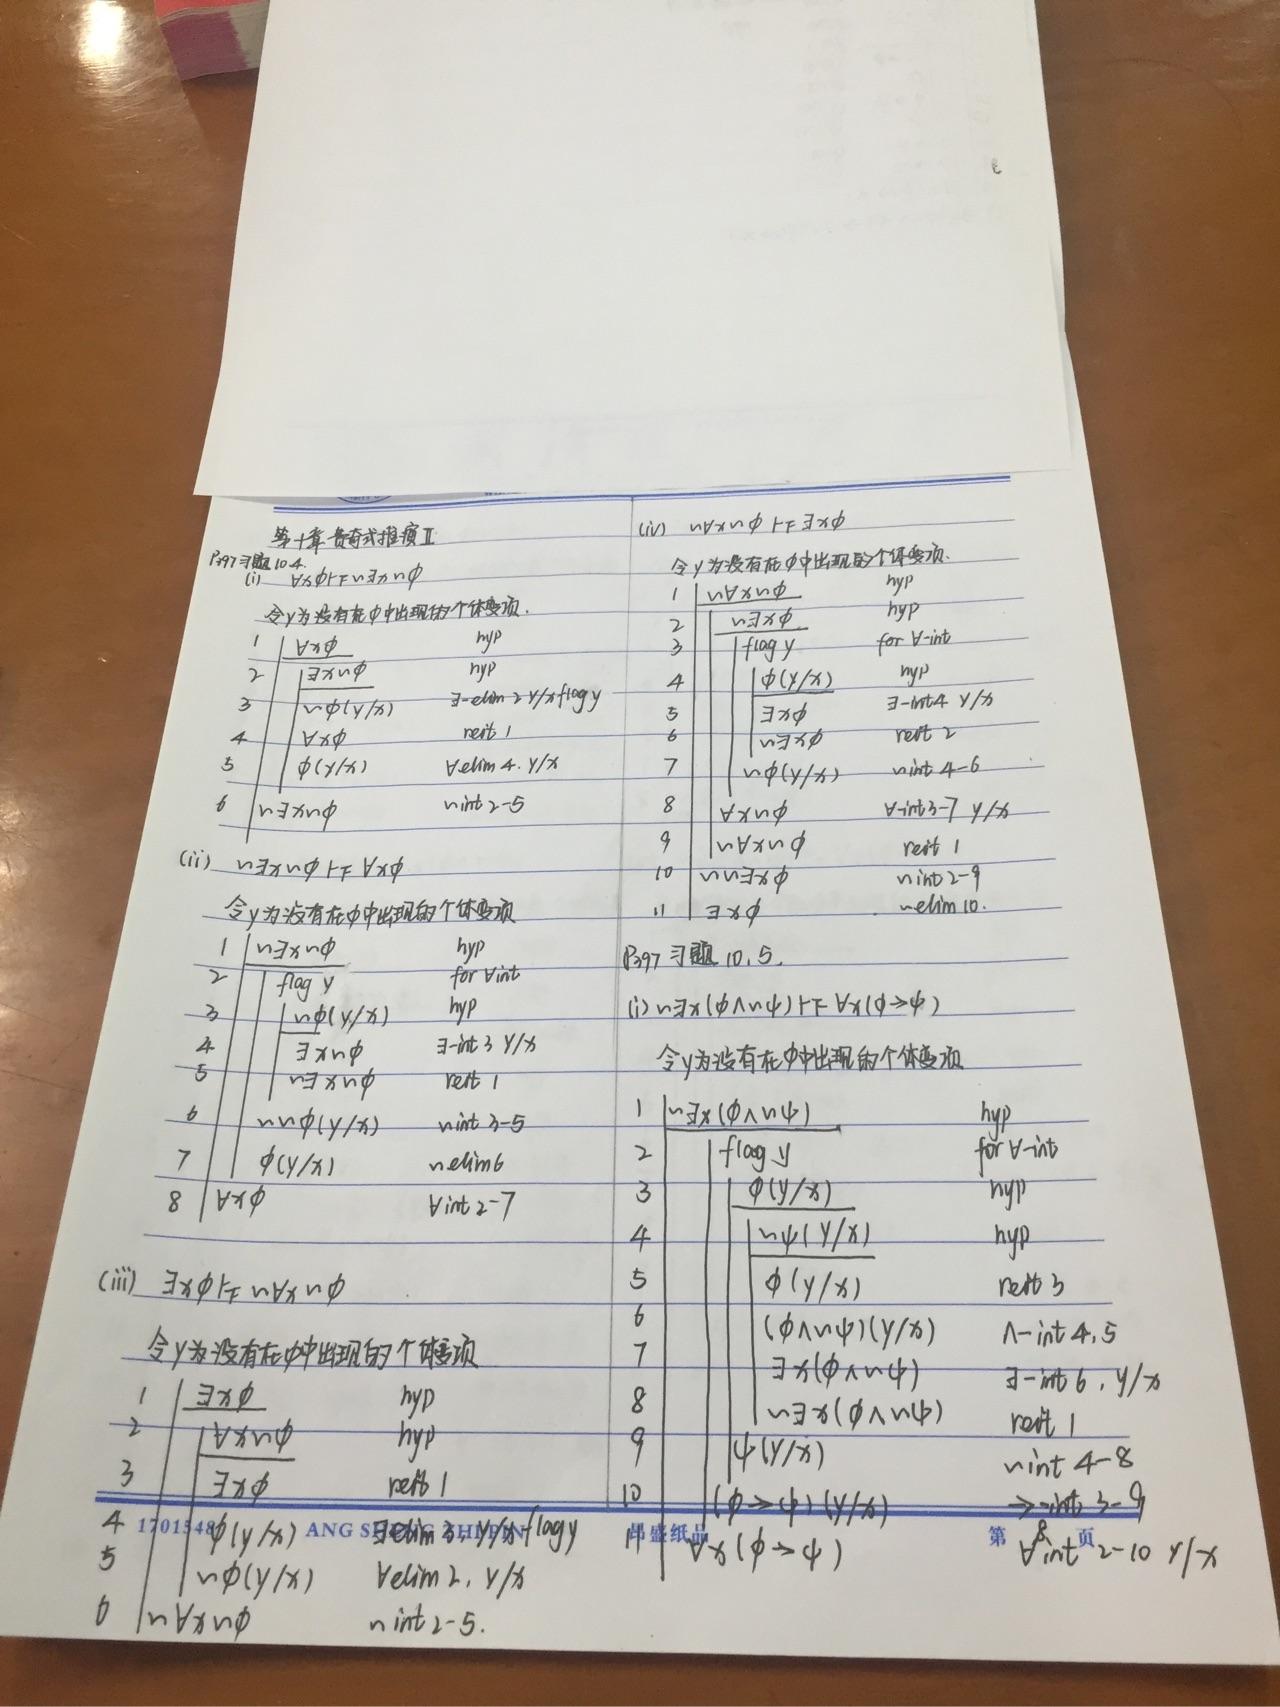 第十章 费奇式推演Ⅱ
P397 习题 10.4.
(i) ∀xφ⊢⊣~∃x~φ
令y为没有在φ中出现的个体变项.
1 ∀xφ hyp
2 ∃x~φ hyp
3 ~φ(y/x) ∃-elim 2 y/x flag y
4 ∀xφ reit 1
5 φ(y/x) ∀elim 4. y/x
6 ~∃x~φ ~int 2-5
(ii) ~∃x~φ⊢⊣∀xφ
令y为没有在φ中出现的个体变项
1 ~∃x~φ hyp
2 flag y for ∀int
3 ~φ(y/x) hyp
4 ∃x~φ ∃-int 3 y/x
5 ~∃x~φ reit 1
6 ~~φ(y/x) ~int 3-5
7 φ(y/x) ~elim 6
8 ∀xφ ∀int 2-7
(iii) ∃xφ⊢⊣~∀x~φ
令y为没有在φ中出现的个体变项
1 ∃xφ hyp
2 ∀x~φ hyp
3 ∃xφ reit 1
4 φ(y/x) ∃elim 3, y/x flag y
5 ~φ(y/x) ∀elim 2, y/x
6 ~∀x~φ ~int 2-5.
(iv) ~∀x~φ⊢⊣∃xφ
令y为没有在φ中出现的个体变项.
1 ~∀x~φ hyp
2 ~∃xφ hyp
3 flag y for ∀-int
4 φ(y/x) hyp
5 ∃xφ ∃-int 4 y/x
6 ~∃xφ reit 2
7 ~φ(y/x) ~int 4-6
8 ∀x~φ ∀-int 3-7 y/x
9 ~∀x~φ reit 1
10 ~~∃xφ ~int 2-9
11 ∃xφ ~elim 10.
P397 习题 10.5.
(i) ~∃x(φ∧~ψ)⊢⊣∀x(φ→ψ)
令y为没有在φ中出现的个体变项
1 ~∃x(φ∧~ψ) hyp
2 flag y for ∀-int
3 φ(y/x) hyp
4 ~ψ(y/x) hyp
5 φ(y/x) reit 3
6 (φ∧~ψ)(y/x) ∧-int 4,5
7 ∃x(φ∧~ψ) ∃-int 6, y/x
8 ~∃x(φ∧~ψ) reit 1
9 ψ(y/x) ~int 4-8
10 (φ→ψ)(y/x) →-int 3-9
11 ∀x(φ→ψ) ∀int 2-10 y/x
1701548 ANG SHENG ZHI PIN 昂盛纸品 第 页